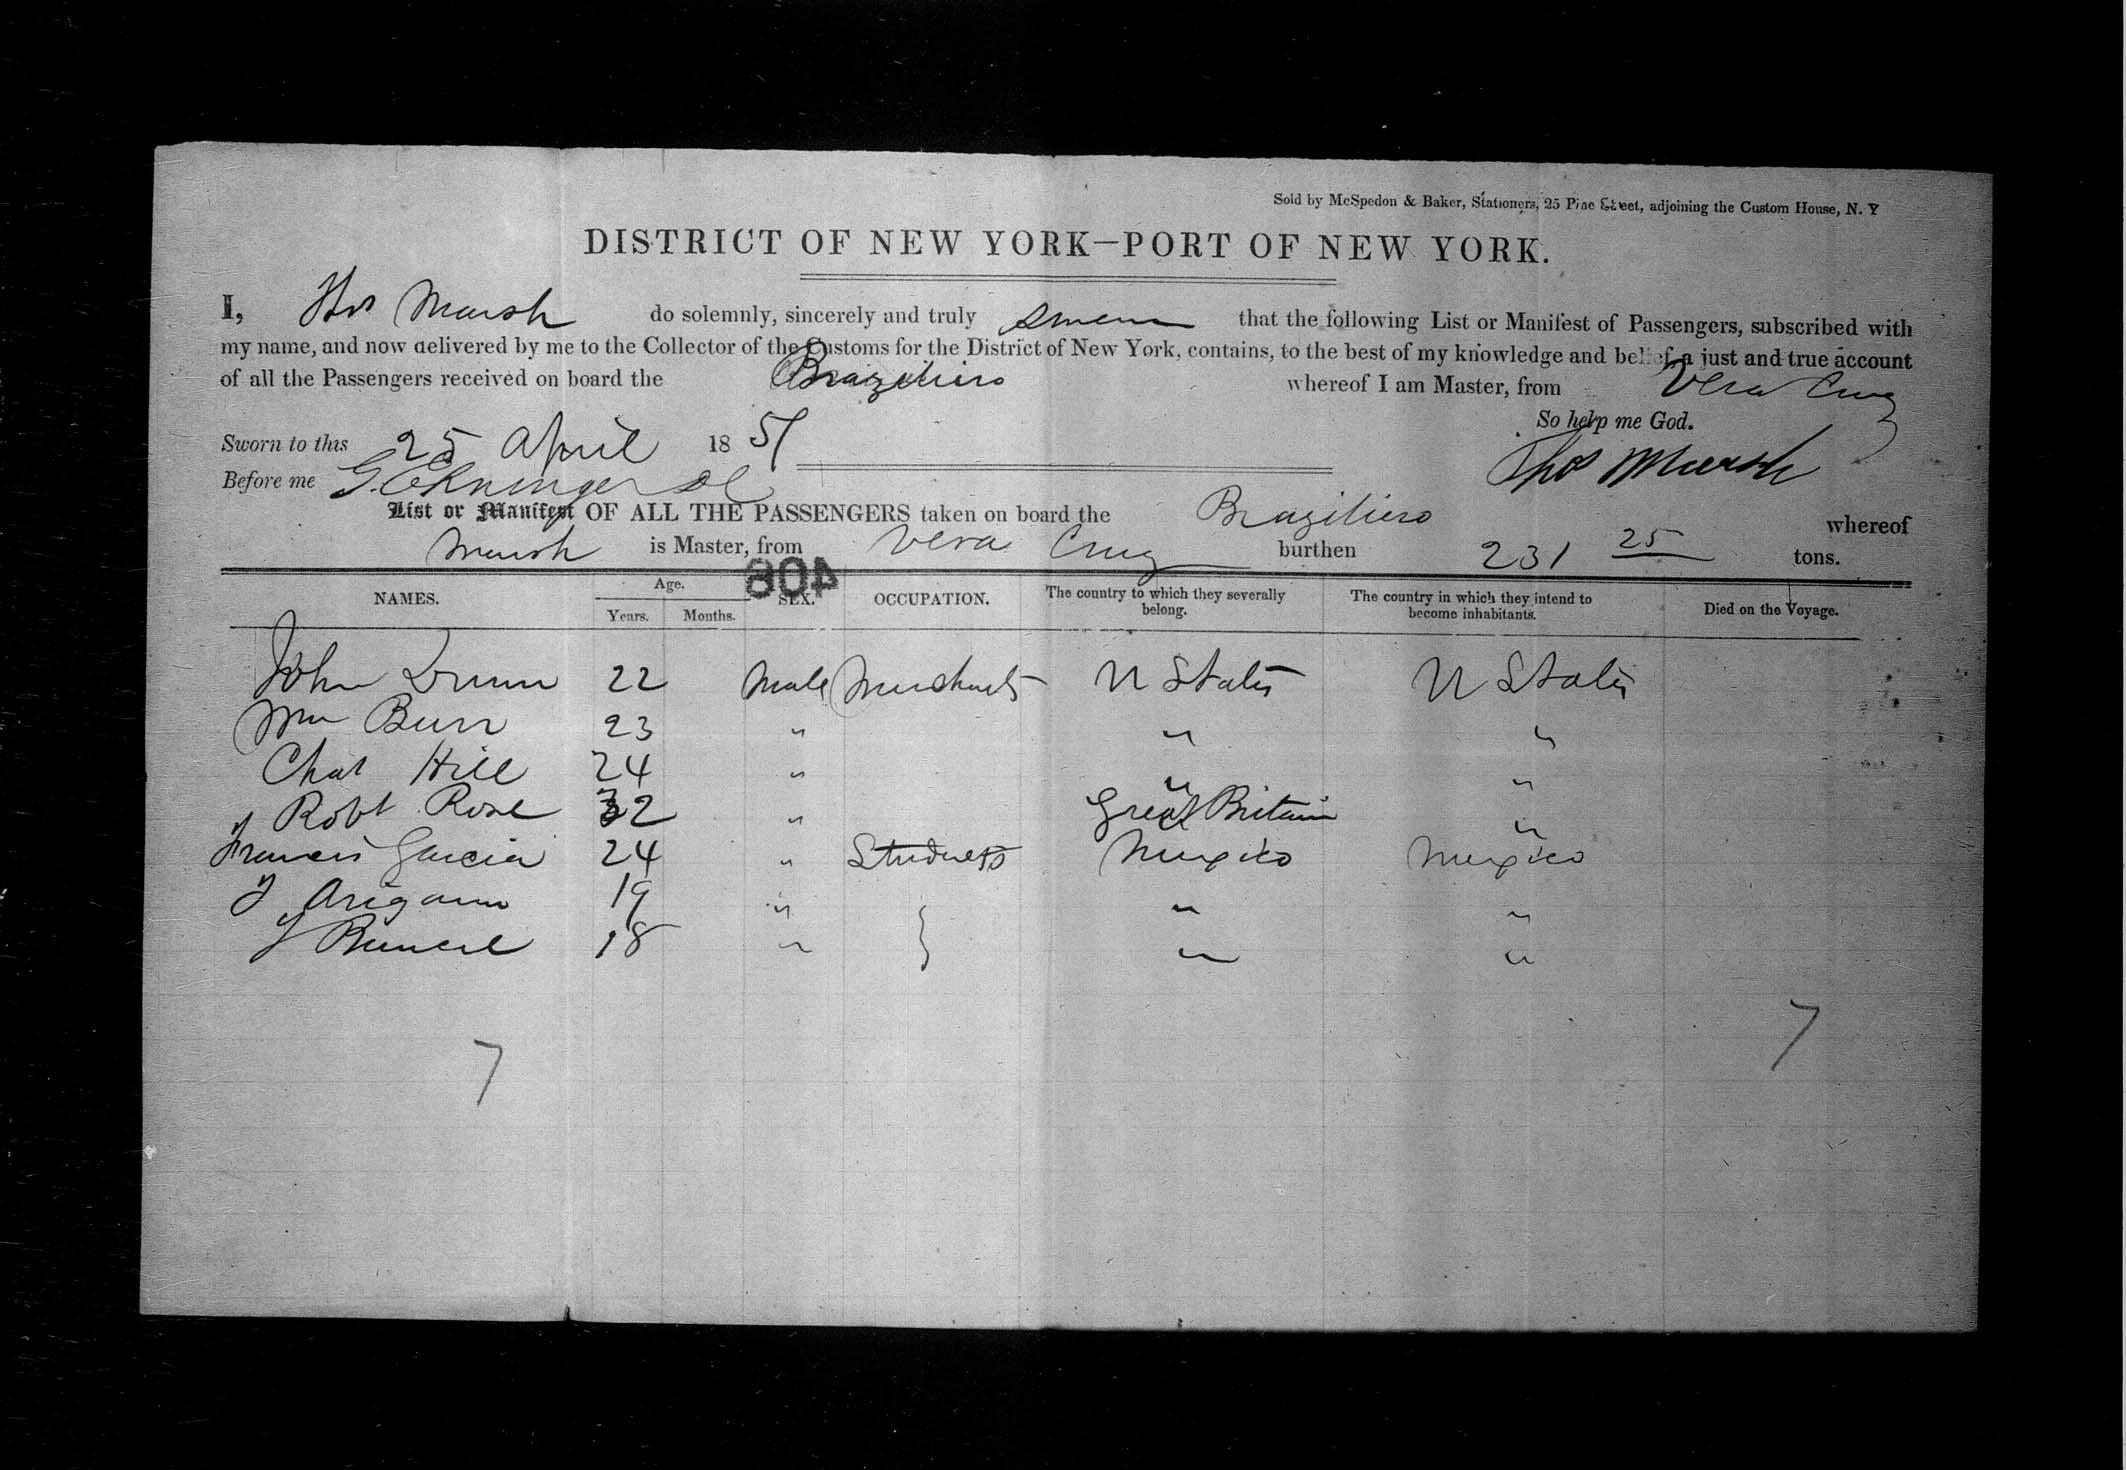 Sold by McSpedon & Baker, Stationers, 25 Pine Street, adjoining the Custom House, N. Y
DISTRICT OF NEW YORK—PORT OF NEW YORK.
I, Thos Marsh do solemnly, sincerely and truly swear that the following List or Manifest of Passengers, subscribed with
my name, and now delivered by me to the Collector of the Customs for the District of New York, contains, to the best of my knowledge and belief, a just and true account
of all the Passengers received on board the Braziliero whereof I am Master, from Vera Cruz
So help me God.
Sworn to this 25 April 1851
Thos Marsh
Before me
List or Manifest OF ALL THE PASSENGERS taken on board the Braziliero whereof
Marsh is Master, from Vera Cruz burthen 231 25 tons.
406
NAMES. Age. Years. Months. SEX. OCCUPATION. The country to which they severally belong. The country in which they intend to become inhabitants. Died on the Voyage.
John Dunn 22 Male Merchants U States U States
Wm Burr 23 " " "
Chas Hill 24 " " "
Robt Rose 32 " Great Britain "
Francis Garcia 24 " Students Mexico Mexico
19 " } " "
18 " " "
7 7